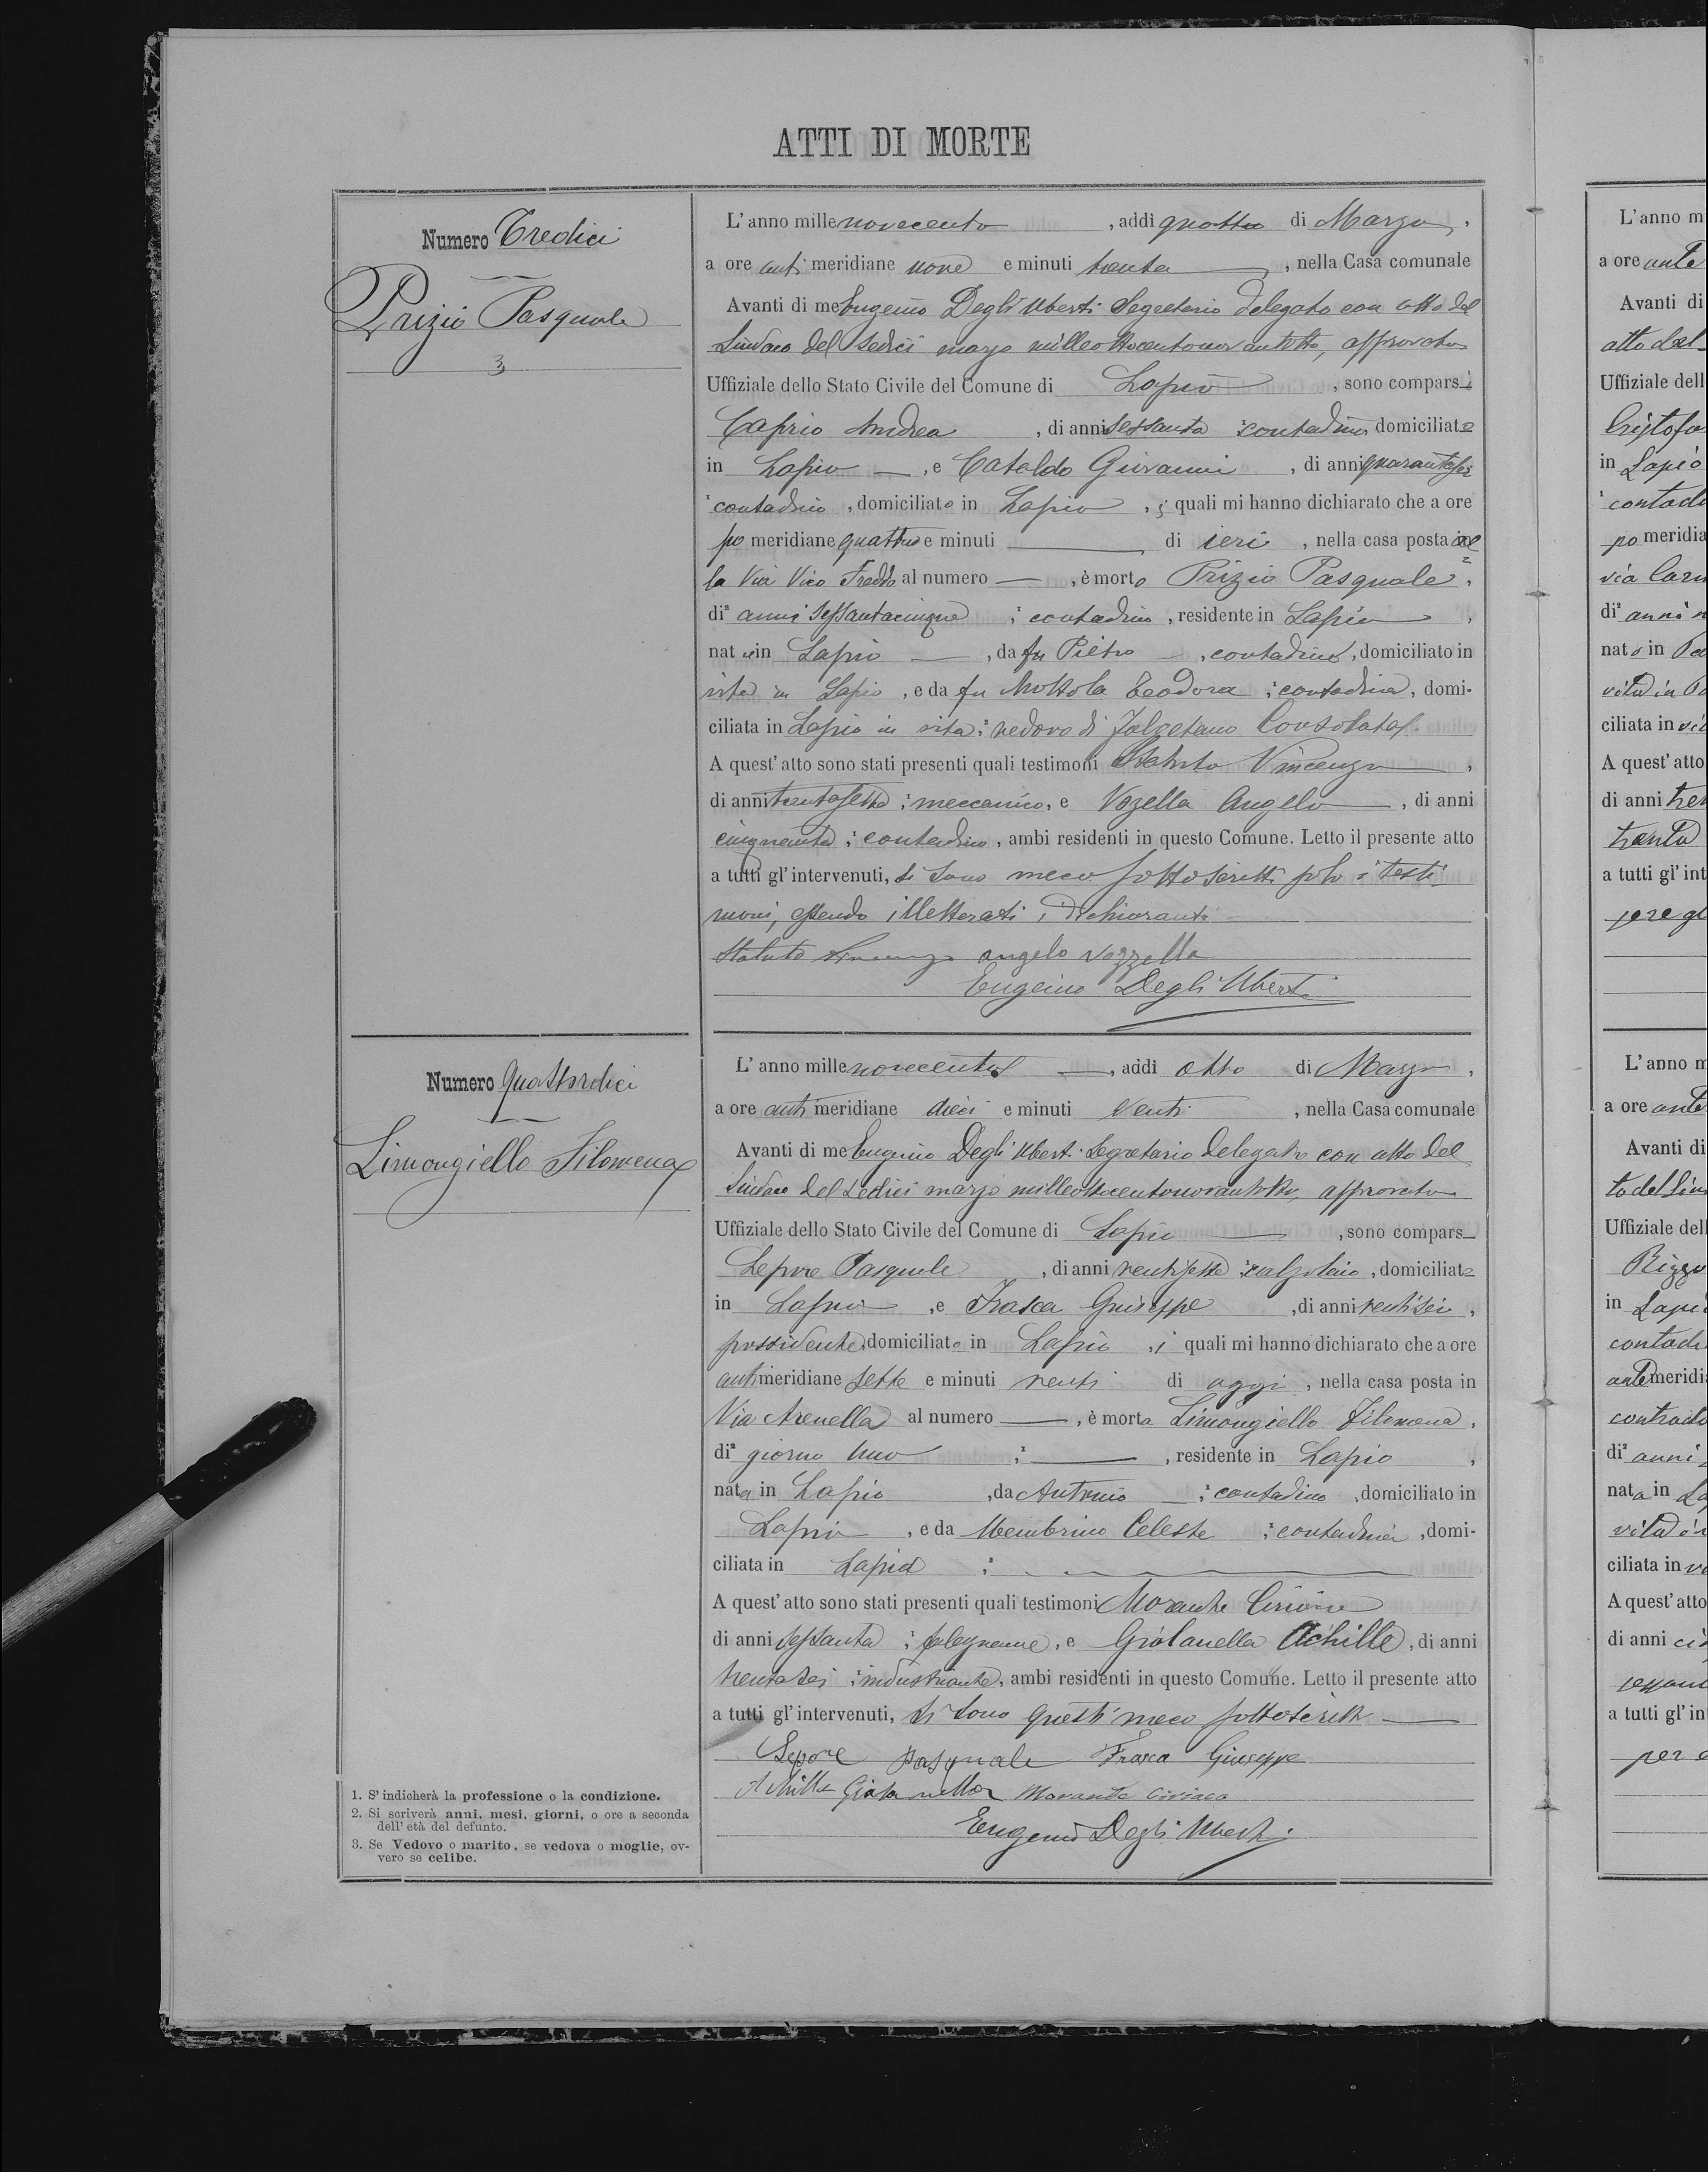 ATTI DI MORTE
Numero Tredici
Prizio Pasquale
3
L'anno millenovecento, addì quattro di Marzo,
a ore anti meridiane nove e minuti trenta, nella Casa comunale
Avanti di me Eugenio Degli Uberti Segretario delegato con atto del
Sindaco del sedici marzo milleottocentonovantotto, approvato
Uffiziale dello Stato Civile del Comune di Lapio, sono comparsi
Caprio Andrea, di anni sessanta contadino domiciliato
in Lapio, e Cataldo Giovanni, di anni quarantasei
contadino, domiciliato in Lapio, i quali mi hanno dichiarato che a ore
po meridiane quattro e minuti di ieri, nella casa posta nel
la Via Vico Freddo al numero, è morto Prizio Pasquale,
di anni sessantacinque, contadino, residente in Lapio,
nato in Lapio, da fu Pietro, contadino, domiciliato in
vita in Lapio, e da fu Mottola Teodora, contadina, domi-
ciliata in Lapio in vita; vedovo di Consolata.
A quest'atto sono stati presenti quali testimoni Statuto Vincenzo,
di anni trentasette, meccanico, e Vozella Angelo, di anni
cinquanta, contadino, ambi residenti in questo Comune. Letto il presente atto
a tutti gl'intervenuti, si sono meco sottoscritti solo i testi
moni, essendo illetterati i dichiaranti
Statuto Vincenzo angelo vozzella
Eugenio Degli Uberti
Numero Quattordici
Limongiello Filomena
L'anno millenovecento, addì otto di Marzo,
a ore anti meridiane dieci e minuti venti, nella Casa comunale
Avanti di me Eugenio Degli Uberti Segretario delegato con atto del
Sindaco del sedici marzo milleottocentonovantotto, approvato
Uffiziale dello Stato Civile del Comune di Lapio, sono compars
Lepore Pasquale, di anni ventisette calzolaio, domiciliato
in Lapio, e Frasca Giuseppe, di anni ventisei,
possidente, domiciliato in Lapio, i quali mi hanno dichiarato che a ore
anti meridiane sette e minuti venti di oggi, nella casa posta in
Via Arenella al numero, è morta Limongiello Filomena,
di giorno uno, residente in Lapio,
nata in Lapio, da Antonio, contadino, domiciliato in
Lapio, e da Membrino Celeste, contadina, domi-
ciliata in Lapio
A quest'atto sono stati presenti quali testimoni Morante
di anni sessanta, falegname, e Giolanella Achille, di anni
trentasei, industriante, ambi residenti in questo Comune. Letto il presente atto
a tutti gl'intervenuti, si sono questi meco sottoscritti
Lepore pasquale Frasca Giuseppe
Achille Giolanella Morante Ciriaco
Eugenio Degli Uberti
1. S'indicherà la professione o la condizione.
2. Si scriverà anni, mesi, giorni, o ore a seconda
dell'età del defunto.
3. Se Vedovo o marito, se vedova o moglie, ov-
vero se celibe.
L'anno m
a ore ante
Avanti di
atto del
Uffiziale dell
Cristofa
in Lapio
contadi
po meridia
via Carm
di anni
nato in
vita in
ciliata in
A quest'atto
di anni tren
trenta
a tutti gl'int
L'anno m
a ore ante
Avanti di
to del Sin
Uffiziale dell
Rizzo
in Lapio
contadi
ante meridia
contrada
di anni
nata in La
vita in
ciliata in
A quest'atto
di anni ci
a tutti gl'in
per